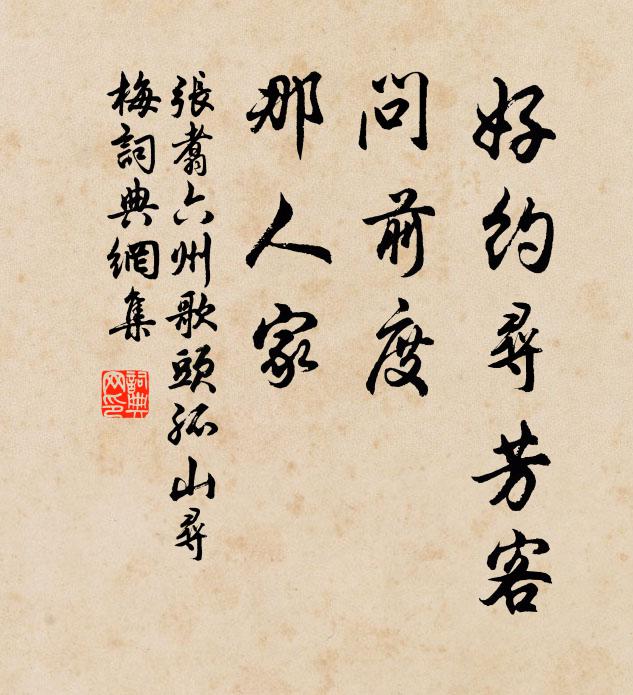 好約尋芳客
問前度
那人家
張翥六州歌頭孤山尋
梅詞典網集
詞典網印